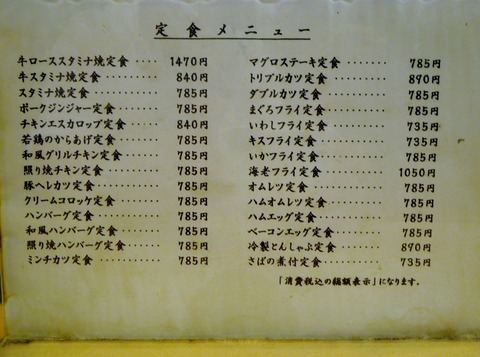 定食メニュー
牛ローススタミナ焼定食 ····· 1470円
牛スタミナ焼定食 ····· 840円
スタミナ焼定食 ····· 785円
ポークジンジャー定食 ····· 785円
チキンエスカロップ定食 ··· 840円
若鶏のからあげ定食 ···· 785円
和風グリルチキン定食 ···· 785円
照り焼チキン定食 ····· 785円
豚ヘレカツ定食 ····· 785円
クリームコロッケ定食 ···· 785円
ハンバーグ定食 ····· 785円
和風ハンバーグ定食 ···· 785円
照り焼ハンバーグ定食 ···· 785円
ミンチカツ定食 ····· 785円
マグロステーキ定食 ···· 785円
トリプルカツ定食 ····· 890円
ダブルカツ定食 ····· 785円
まぐろフライ定食 ····· 785円
いわしフライ定食 ····· 735円
キスフライ定食 ····· 735円
いかフライ定食 ····· 785円
海老フライ定食 ····· 1050円
オムレツ定食 ····· 785円
ハムオムレツ定食 ····· 785円
ハムエッグ定食 ····· 785円
ベーコンエッグ定食 ···· 785円
冷製とんしゃぶ定食 ···· 890円
さばの煮付定食 ····· 735円
「消費税込の総額表示」になります。